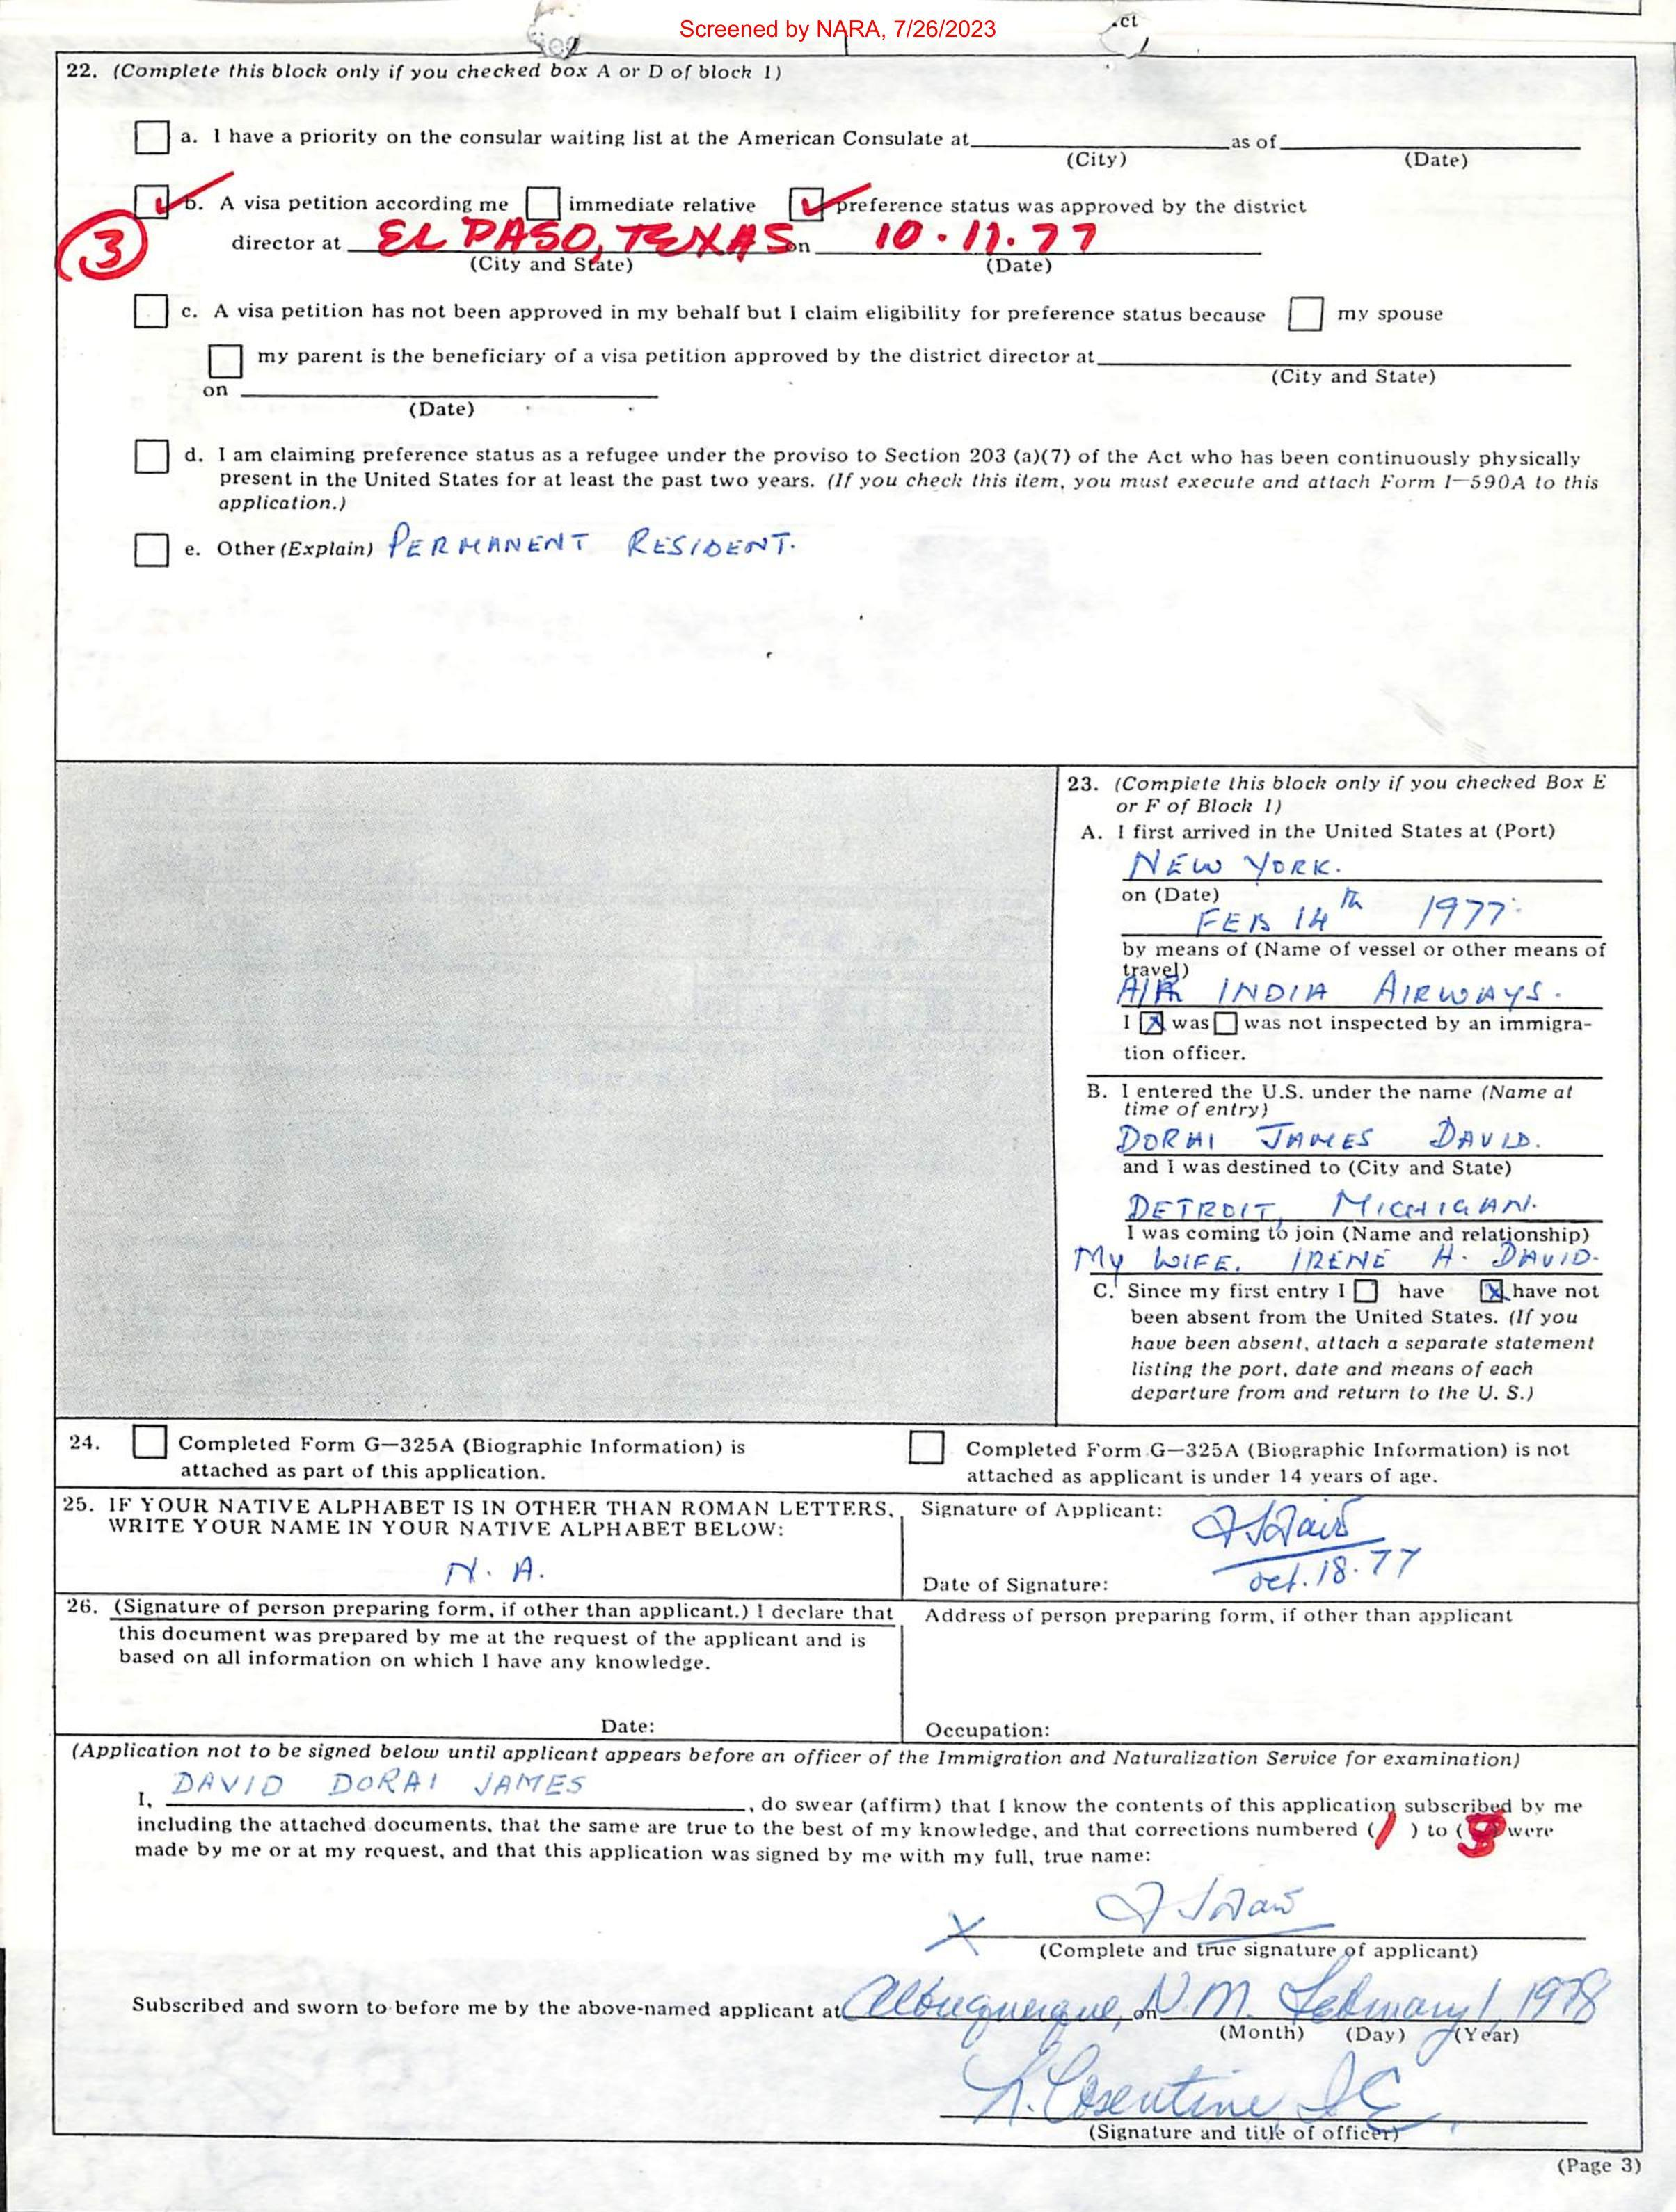 Screened by NARA, 7/26/2023
ct
22. (Complete this block only if you checked box A or D of block 1)
a. I have a priority on the consular waiting list at the American Consulate at as of
(City) (Date)
b. A visa petition according me immediate relative preference status was approved by the district
3 director at EL PASO, TEXAS on 10.11.77
(City and State) (Date)
c. A visa petition has not been approved in my behalf but I claim eligibility for preference status because my spouse
my parent is the beneficiary of a visa petition approved by the district director at
(City and State)
on
(Date)
d. I am claiming preference status as a refugee under the proviso to Section 203 (a)(7) of the Act who has been continuously physically
present in the United States for at least the past two years. (If you check this item, you must execute and attach Form I—590A to this
application.)
e. Other (Explain) PERMANENT RESIDENT.
23. (Complete this block only if you checked Box E
or F of Block 1)
A. I first arrived in the United States at (Port)
NEW YORK.
on (Date)
FEB 14th 1977.
by means of (Name of vessel or other means of
travel)
AIR INDIA AIRWAYS.
I X was was not inspected by an immigra-
tion officer.
B. I entered the U.S. under the name (Name at
time of entry)
DORAI JAMES DAVID.
and I was destined to (City and State)
DETROIT, MICHIGAN.
I was coming to join (Name and relationship)
MY WIFE. IRENE H. DAVID.
C. Since my first entry I have X have not
been absent from the United States. (If you
have been absent, attach a separate statement
listing the port, date and means of each
departure from and return to the U. S.)
24. Completed Form G—325A (Biographic Information) is
attached as part of this application.
Completed Form G—325A (Biographic Information) is not
attached as applicant is under 14 years of age.
25. IF YOUR NATIVE ALPHABET IS IN OTHER THAN ROMAN LETTERS,
WRITE YOUR NAME IN YOUR NATIVE ALPHABET BELOW:
N. A.
Signature of Applicant:
Date of Signature: Oct. 18. 77
26. (Signature of person preparing form, if other than applicant.) I declare that
this document was prepared by me at the request of the applicant and is
based on all information on which I have any knowledge.
Date:
Address of person preparing form, if other than applicant
Occupation:
(Application not to be signed below until applicant appears before an officer of the Immigration and Naturalization Service for examination)
I, DAVID DORAI JAMES, do swear (affirm) that I know the contents of this application subscribed by me
including the attached documents, that the same are true to the best of my knowledge, and that corrections numbered (1) to ( ) were
made by me or at my request, and that this application was signed by me with my full, true name:
X
(Complete and true signature of applicant)
Subscribed and sworn to before me by the above-named applicant at Albuquerque, on N.M. February 1, 1978
(Month) (Day) (Year)
(Signature and title of officer)
(Page 3)